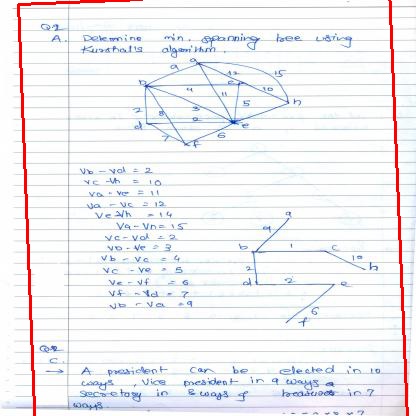 Q2
A. Determine min. spanning tree using
Kurshal's algorithm.
a
9 12 15
b 4 c 10
11 5 h
2 8 3
d 2 e
7 6
f
Vb - Vd = 2
Vc - Vh = 10
Va - Ve = 11
Va - Vc = 12
Ve - Vh = 14
Va - Vh = 15
Vc - Vd = 2
Vb - Ve = 3
Vb - Vc = 4
Vc - Ve = 5
Ve - Vf = 6
Vf - Vd = 7
Vb - Va = 9
a
9
b 1 c
2 10 h
d 2 e
6
f
Q2
C.
→ A president can be elected in 10
ways, Vice president in 9 ways
secretary in 8 ways & in 7
ways.